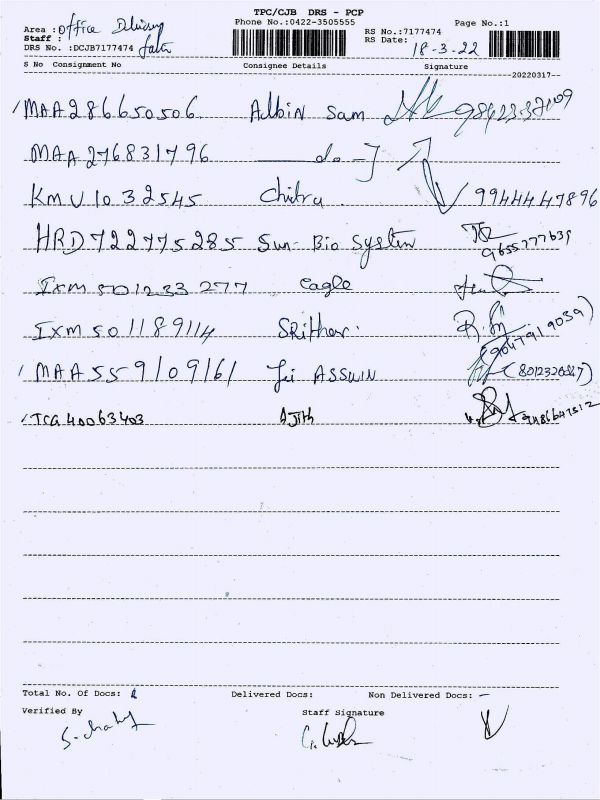 TPC/CJB DRS - PCP
Area : Office Delivery
Phone No.:0422-3505555
Page No.:1
Staff :
RS No.:7177474
DRS No. :DCJB7177474
RS Date: 18-3-22
S No Consignment No Consignee Details Signature
20220317
MAA286650506 Albin Sam
MAA276831796 do
KMU1032545 Chitra 9944447896
HRD722775285 Sun Bio System
IXM501233277 eagle
IXM501189114 Srither
MAA559109161 Jei ASSWIN
TCG40063403 Ajith
Total No. Of Docs: Delivered Docs: Non Delivered Docs: -
Verified By Staff Signature